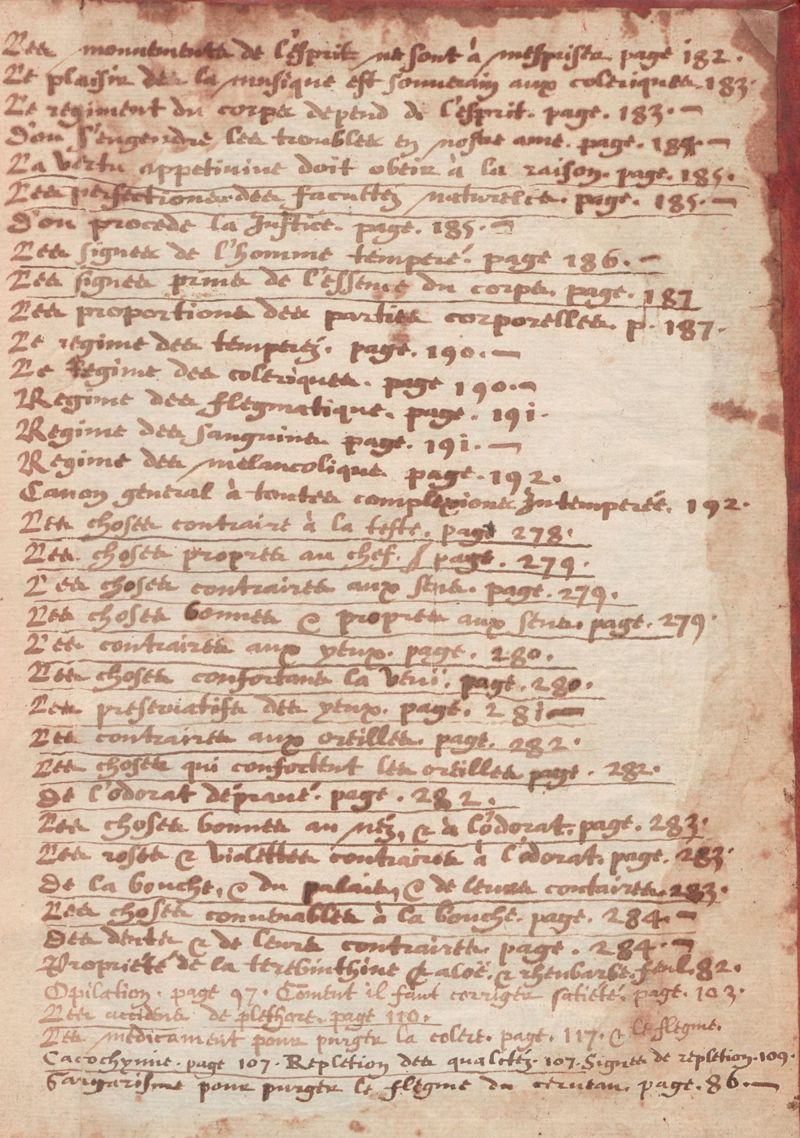 Les mouvements de l'esprit ne sont à mespriser page 182.
Le plaisir de la musique est souverain aux coleriques 183.
Le regiment du corps depend de l'esprit. page. 183.
D'ou s'engendre les troubles en nostre ame. page. 184
La vertu appetitive doit obeir à la raison. page. 185.
Les perfections des facultéz naturelles. page. 185.
D'ou procede la Justice. page. 185.
Les signes de l'homme temperé. page 186.
Les signes prins de l'essence du corps. page. 187
Les proportions des parties corporelles. p. 187.
Le regime des temperéz. page. 190.
Le regime des coleriques. page 190.
Regime des flegmatique. page. 191.
Regime des sanguins page. 191.
Regime des melancolique page. 192.
Canon general à toutes complexions Intemperés. 192.
Les choses contraire à la teste. page 278.
Les choses propres au chef. page. 279.
Les choses contraires aux sens. page. 279.
Les choses bonnes & propres aux sens. page. 279.
Les contraires aux yeux. page. 280.
Les choses confortans la veüe. page. 280.
Les preservatifs des yeux. page. 281
Les contraires aux oreilles. page. 282.
Les choses qui confortent les oreilles page. 282.
De l'odorat dépravé. page. 282.
Les choses bonnes au néz, & à l'odorat. page. 283.
Les roses & violettes contraires à l'odorat. page. 283.
De la bouche, & du palais, & de leurs contaires. 283.
Les choses convenables à la bouche. page. 284.
Des dents & de leurs contraires. page. 284.
Proprieté de la terebinthine & aloë, & rheubarbe. feul. 82.
Opilation. page 97. Coment il faut corriger satieté. page. 103.
Les accidens de plethore. page 110.
Les medicament pour purger la colere. page. 117. & le flegme.
Cacochymie. page 107. Repletion des qualitéz. 107. Signes de repletion. 109.
Gargarisme pour purger le flegme du cerveau. page. 86.